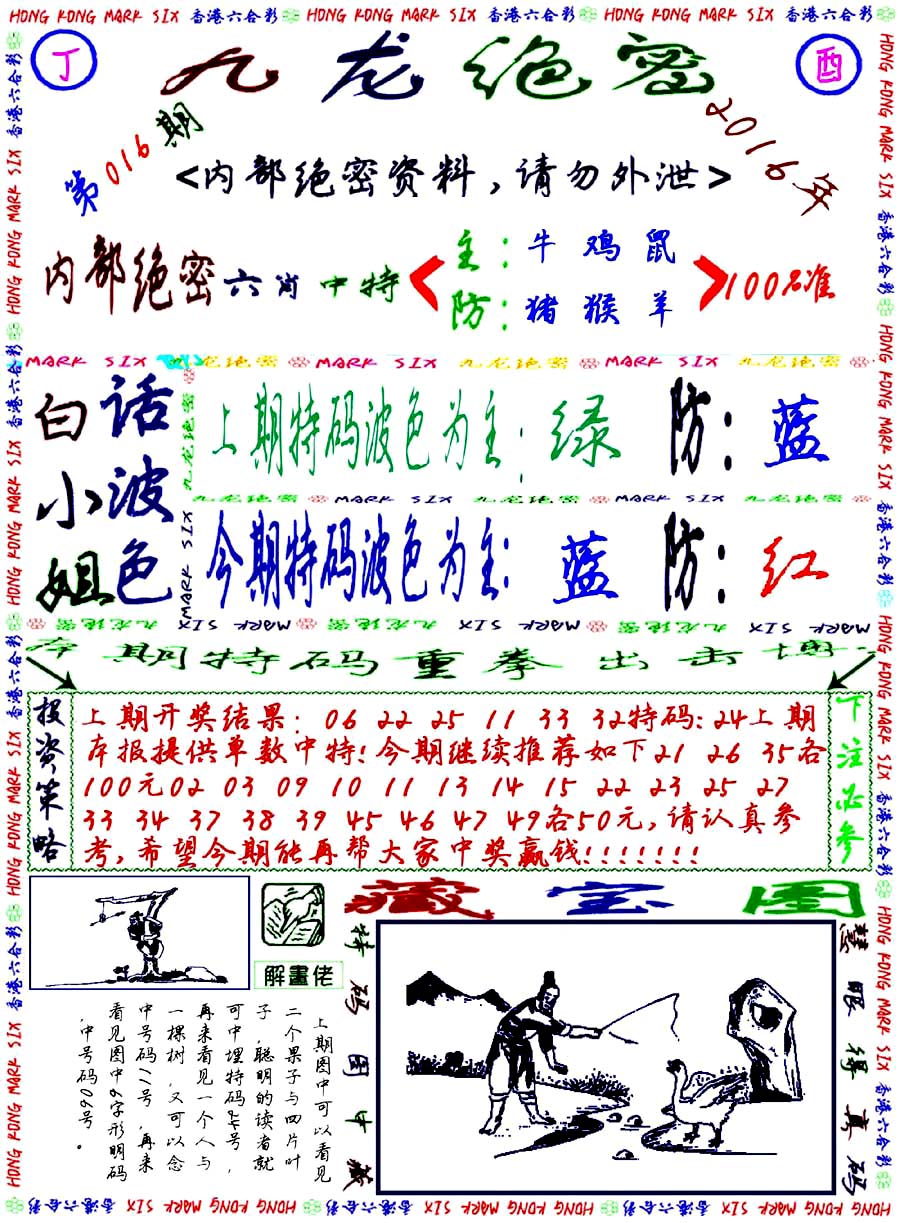 HONG KONG MARK SIX 香港六合彩 HONG KONG MARK SIX 香港六合彩 HONG KONG MARK SIX 香港六合彩
丁
九龙绝密
酉
第016期
2016年
<内部绝密资料,请勿外泄>
内部绝密六肖中特
主:牛 鸡 鼠
防:猪 猴 羊
100%准
MARK SIX 九龙绝密 MARK SIX 九龙绝密 MARK SIX 九龙绝密
白小姐
话波色
上期特码波色为主:绿 防:蓝
九龙绝密 MARK SIX 九龙绝密 MARK SIX 九龙绝密
今期特码波色为主:蓝 防:红
九龙绝密 MARK SIX 九龙绝密 MARK SIX 九龙绝密 MARK SIX
本期特码重拳出击博
投资策略
上期开奖结果: 06 22 25 11 33 32特码:24上期
本报提供单数中特!今期继续推荐如下21 26 35各
100元02 03 09 10 11 13 14 15 22 23 25 27
33 34 37 38 39 45 46 47 49各50元,请认真参
考,希望今期能再帮大家中奖赢钱!!!!!!!
下注必参
藏宝图
解畫佬
特码图中藏
慧眼得真码
上期图中可以看见
二个果子与四片叶
子,聪明的读者就
可中埋特码24号,
再来看见一个人与
一棵树,又可以念
中号码11号,再来
看见图中6字形明码
,中号码06号。
HONG KONG MARK SIX 香港六合彩 HONG KONG MARK SIX 香港六合彩 HONG KONG MARK SIX 香港六合彩